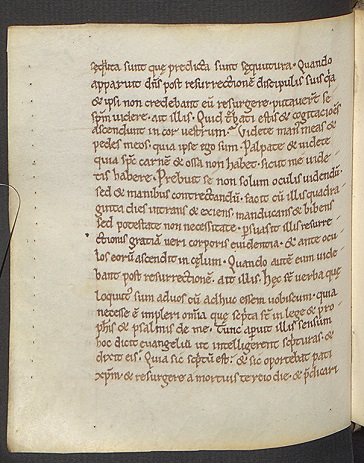 sequta sunt que predicta sunt sequitura. Quando
apparuit dñs post resurrectionē discipulis suis q̃a
& ipsi non credebant eũ resurgere. putauerť se
sp̃m uidere. ait illis. Quid t̃bati estis & cogitacioes
ascendunt in cor uestrum? Videte man᷒ meas &
pedes meos. quia ipse ego sum. Palpate & uidete
quia sp̃c carnē & ossa non habet. sicut me uide
tis habere. Prebuit se non solum oculis uidendũ.
sed & manibus contrectandũ. facto cũ illis quadra
ginta dies intrans & exiens. manducans & bibens
sed potestate non necessitate. psuasit illis resurre
ctionis gratiā ueri corporis euidentia. & ante ocu
los eorũ ascendit in cęlum. Quando autē eum uide
bant post resurrectionē. ait illis. Hęc sť uerba quę
loquut᷒ sum ad uos cũ adhuc essem uobiscum. quia
necesse ē impleri omĩa que scpta sť in lege & pro
phis & psalmis de me. Tunc apuit illis sensum
hoc dicit euangeliũ ut intelligerent scpturas. &
dixit eis. Quia sic scptũ est. & sic oportebat pati
xp̃m. & resurgere a mortuis tercio die. & p̃dicari